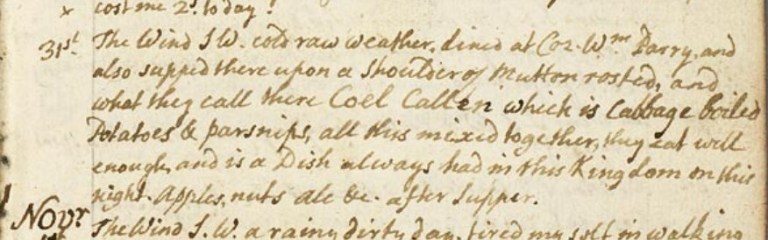 x cost me 2s. to day!
31st The Wind S.W. cold raw weather, dined at Coz. Wm Parry, and
also supped there upon a Shoulder of Mutton rosted, and
what they call there Coel Callen which is Cabbage boiled
Potatoes & parsnips, all this mixed together, they eat well
enough, and is a Dish always had in this Kingdom on this
night. Apples, nuts ale &c. after Supper.
Novr
1st The Wind S.W. a rainy dirty day, tired my self in walking